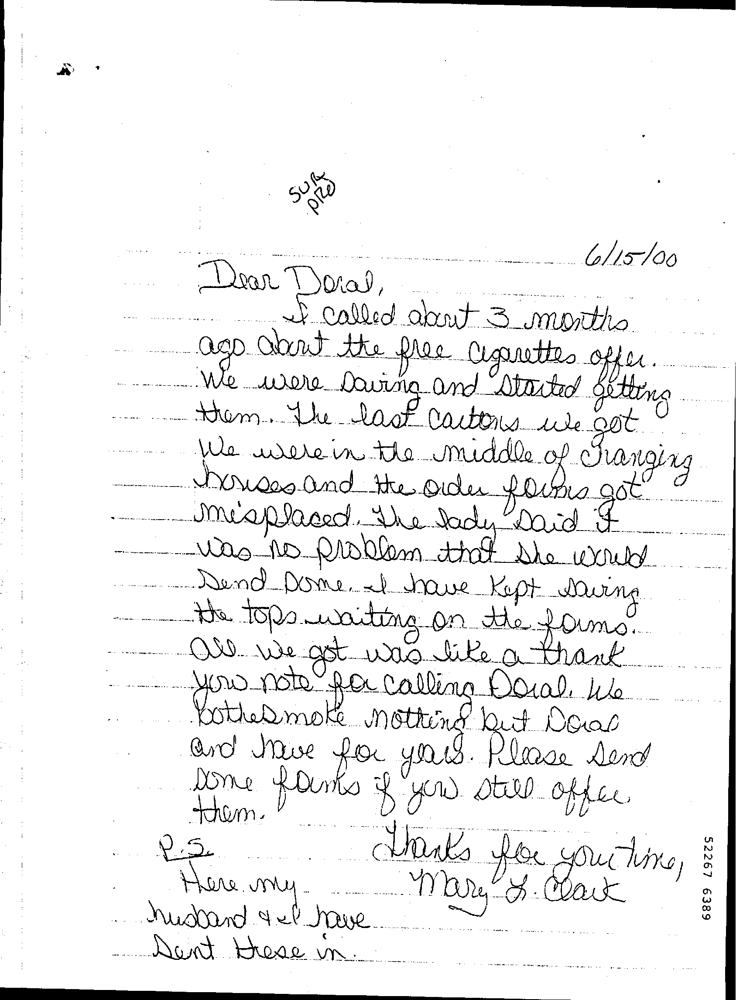 SUR
PRO
6/15/00
Dear Doral,
I called about 3 months
ago about the free cigarettes offer.
We were saving and started getting
them. The last cartons we got
we were in the middle of changing
houses and the order forms got
misplaced. The lady said it
was no problem that she would
send some. I have kept saving
the tops waiting on the forms.
All we got was like a thank
you note for calling Doral. We
bothe smoke nothing but Doral
and have for years. Please send
some forms if you still offer
them.
Thanks for your time,
Mary L. Clark
P.S.
Here my
husband & I have
sent these in.
52267 6389